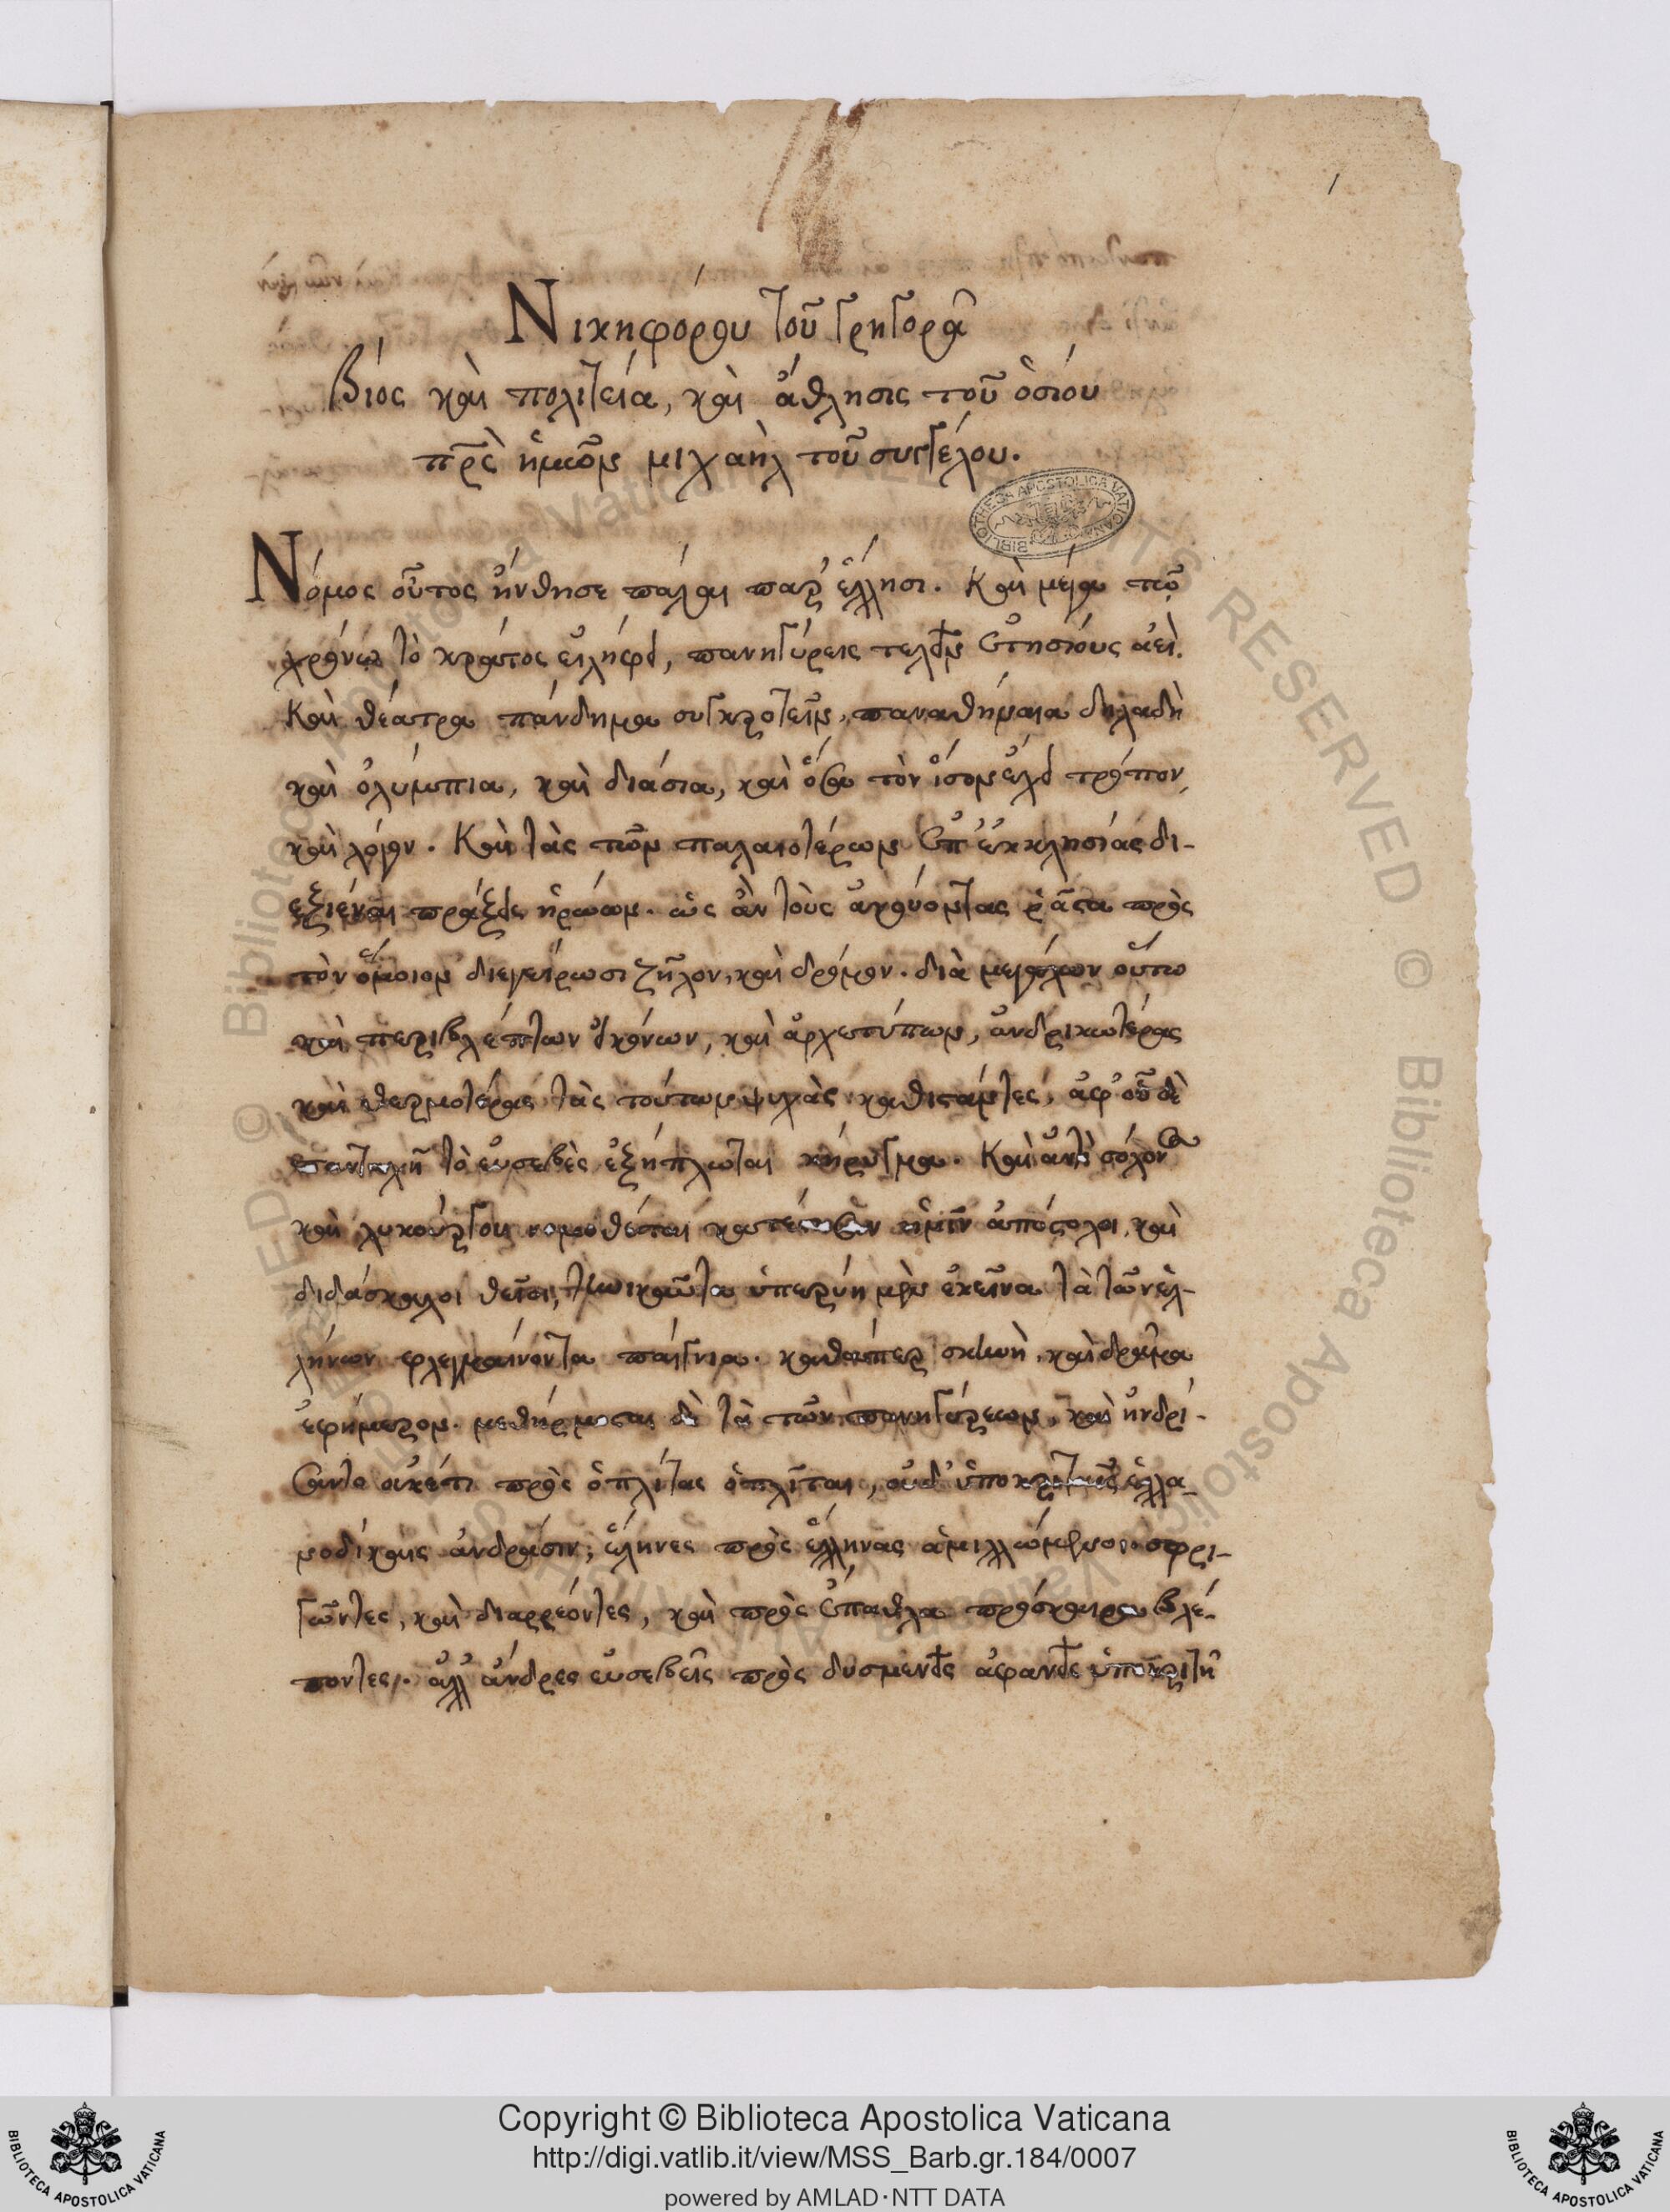 1
Νικηφόρου τοῦ Γρηγορᾶ
βίος καὶ πολιτεία, καὶ ἄθλησις τοῦ ὁσίου
πρς ἡμῶν μιχαὴλ τοῦ συγγέλου.
Νόμος οὗτος ἤνθησε πάλαι παρ' ἕλλησι. Καὶ μέγα τῷ
χρόνῳ τὸ κράτος εἰλήφει, πανηγύρεις τελεῖν ἐτησίους ἀεί.
Καὶ θέατρα πάνδημα συγκροτεῖν, παναθήναια δηλαδὴ
καὶ ὀλύμπια, καὶ διάσια, καὶ ὅσα τὸν ἴσον εἶχε τρόπον,
καὶ λόγον. Καὶ τὰς τῶν παλαιοτέρων ἐπ' ἐκκλησίας δι-
εξιέναι πράξεις ἡρώων. ὡς ἂν τοὺς ἀκούοντας ῥᾷστα πρὸς
τὸν ὅμοιον διεγείρωσι ζῆλον, καὶ δρόμον. διὰ μεγάλων οὕτω
καὶ περιβλέπτων εἰκόνων, καὶ ἀρχετύπων, ἀνδρικωτέρας
καὶ θερμοτέρας τὰς τούτων ψυχὰς καθιστάντες, ἀφ' οὗ δὲ
πανταχῆ τὸ εὐσεβὲς ἐξήπλωται κήρυγμα. Καὶ ἀντὶ σόλωνος
καὶ λυκούργου νομοθέται κατέστησαν ἡμῖν ἀπόστολοι, καὶ
διδάσκαλοι θεῖοι, τηνικαῦτα ὑπερρύη μὲν ἐκεῖνα τὰ τῶν ἑλ-
λήνων φλεγμαίνοντα παίγνια. καθάπερ σκηνὴ, καὶ δρᾶμα
ἐφήμερον. μεθήρμοσται δὲ τὰ τῶν πανηγύρεων, καὶ ἠνδρί-
σαντο οὐκέτι πρὸς ὁπλίτας ὁπλῖται, οὐδ' ὑποκριταῖς ἑλλα-
νοδίκαις ἀνδράσιν, ἕλληνες πρὸς ἕλληνας ἁμιλλώμενοι. σφρι-
γῶντες, καὶ διαρρέοντες, καὶ πρὸς ἔπαθλα πρόσκαιρα βλέ-
ποντες. ἀλλ' ἄνδρες εὐσεβεῖς πρὸς δυσμενεῖς ἀφανεῖς
BIBLIOTHECA APOSTOLICA VATICANA
© Biblioteca Apostolica Vaticana ALL RIGHTS RESERVED
Copyright © Biblioteca Apostolica Vaticana
http://digi.vatlib.it/view/MSS_Barb.gr.184/0007
powered by AMLAD·NTT DATA
BIBLIOTECA APOSTOLICA VATICANA
BIBLIOTECA APOSTOLICA VATICANA